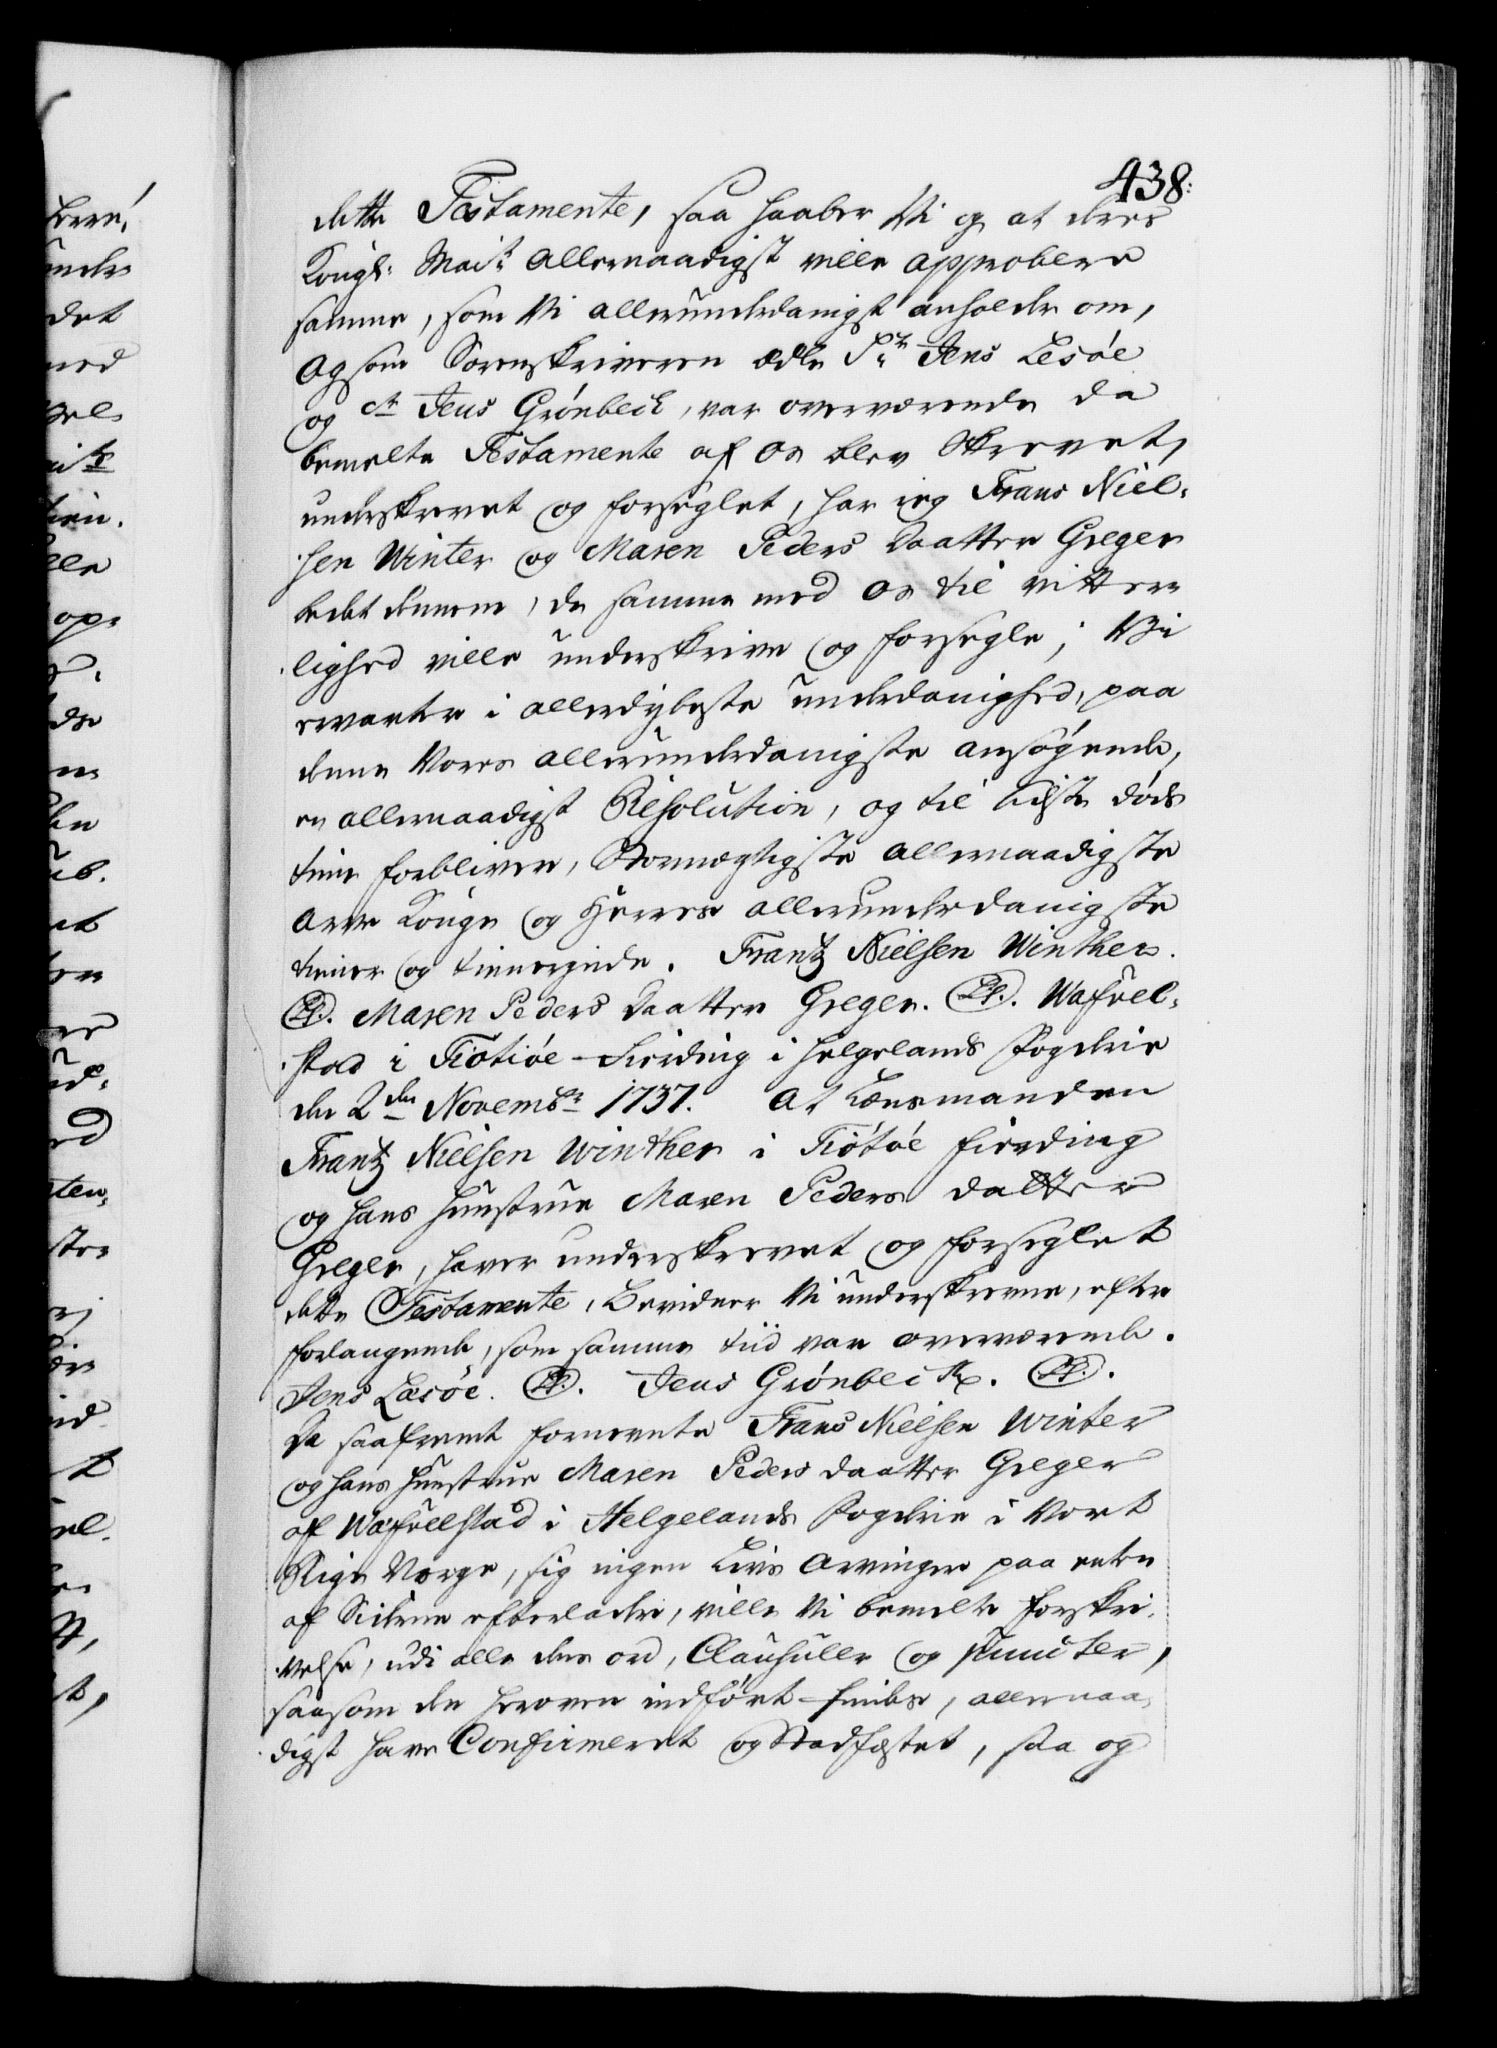 438.
dette Testamente, saa haaber Vi og at deres
Kongl: Mait: allernaadigst ville approbere
samme, som Vi allerunderdanigst anholder om,
Og som Sorenskriveren ædle Sr. Jens Lesøe
og Sr. Jens Grönbech, var overværende da
bemelte Testamente af os blev skrevet,
underskrevet og forseglet, har ieg Frans Niel-
sen Winter og Maren Peders Daatter Greger
ledet dennem, de samme med os til vitter-
lighed ville underskrive og forsegle; Vi
ervarter i allerdybeste underdanighed, paa
denne Vores allerunderdanigste ansøgende,
en allernaadigst Resolution, og til sidste døds
time forbliver, Stormægtigste allernaadigste
Arve Konge og Herres allerunderdanigste
tiener og tienerinde. Frantz Nielsen Winther.
(LS). Maren Peders Daatter Greger. (LS). Wafvel-
stad i Tiøtiøe-Fierding i Helgelands Fogderie
den 2den Novembr: 1737. At Lensmanden
Frantz Nielsen Winther i Tiøtøe fierding
og hans Hustrue Maren Peders datter
Greger, haver underskrevet og forseglet
dette Testamente, bevidner Vi underskrevne, efter
forlangende, som samme tiid var overværende.
Jens Læsøe. (LS). Jens Grönbech. (LS).
Da saafremt fornevnte Frans Nielsen Winter
og hans Hustrue Maren Peders daatter Greger
af Wafvelstad i Helgelands Fogderie i Vort
Rige Norge, sig ingen Livs Arvinger paa enten
af Siderne efterlader, ville Vi bemelte forskri-
velse, udi alle dens ord, Clausuller og puncter,
saasom den heroven indført findes, allernaa-
digst have Confirmeret og Stadfæstet, saa og